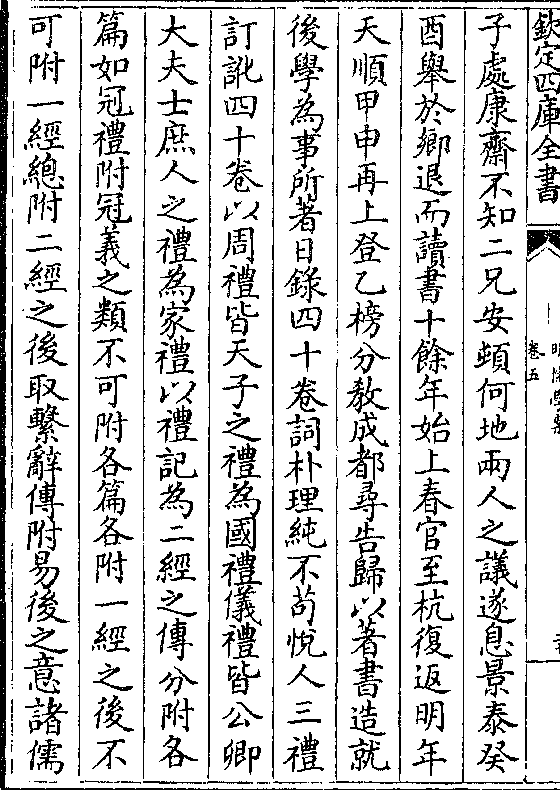 欽定四庫全書
卷五
子處康齋不知二兄安頓何地兩人之議遂息景泰癸
酉舉於鄉退而讀書十餘年始上春官至杭復返明年
天順甲申再上登乙榜分教成都尋告歸以著書造就
後學為事所著日錄四十卷詞朴理純不苟悅人三禮
訂訛四十卷以周禮皆天子之禮為國禮儀禮皆公卿
大夫士庶人之禮為家禮以禮記為二經之傳分附各
篇如冠禮附冠義之類不可附各篇各附一經之後不
可附一經總附二經之後取繫辭傳附易後之意諸儒